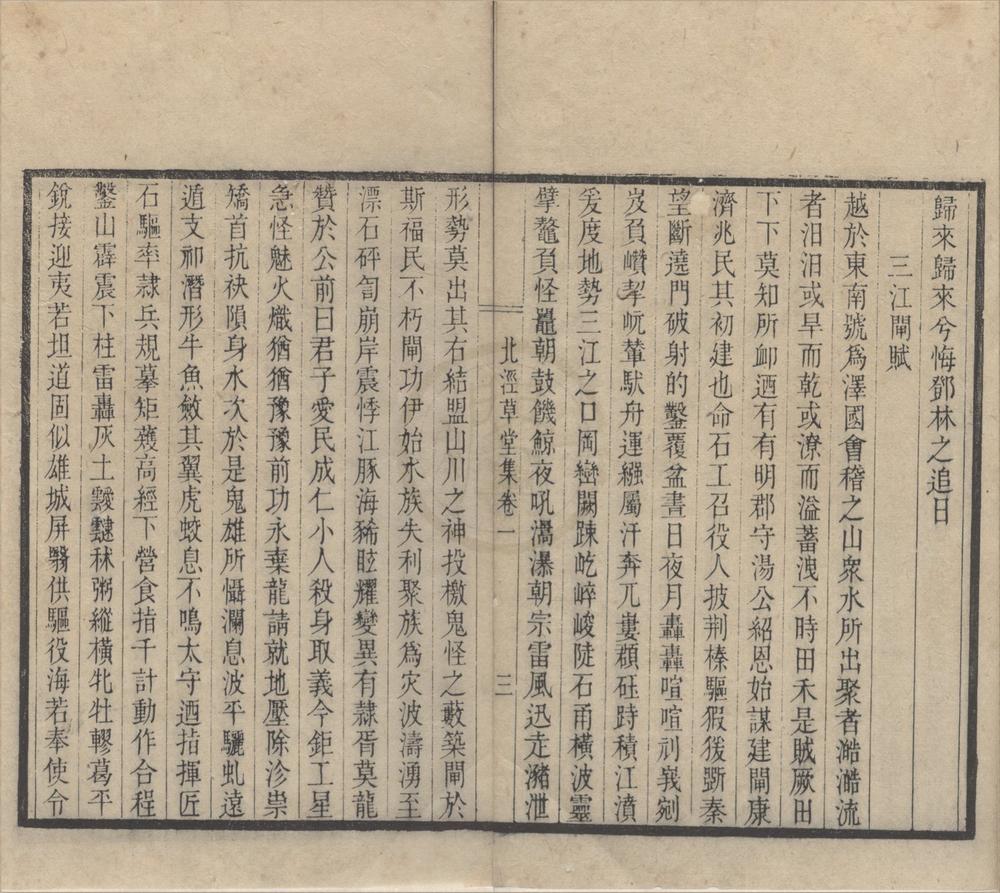 歸來歸來兮悔鄧林之追日
三江閘賦
越於東南號爲澤國會稽之山衆水所出聚者澔澔流
者汨汨或旱而乾或潦而溢蓄洩不時田禾是賊厥田
下下莫知所卹迺有有明郡守湯公紹恩始謀建閘康
濟兆民其初建也命石工召役人披荆榛驅猳猨斲秦
望斷遶門破射的鑿覆盆晝日夜月轟轟喧喧刓峩剜
岌負巑挈岏輦馱舟運繦屬汗奔兀婁頵砡跱積江濆
爰度地勢三江之口岡巒闕踈屹崪峻陡石甬橫波靈
擘鼇負怪鼉朝鼓饑鯨夜吼瀥瀑朝宗雷風迅走瀦泄
北涇草堂集卷一
三
形勢莫出其右結盟山川之神投檄鬼怪之藪築閘於
斯福民不朽閘功伊始水族失利聚族爲灾波濤湧至
漂石砰訇崩岸震悸江豚海豨眩耀變異有隷胥莫龍
贊於公前曰君子愛民成仁小人殺身取義今鉅工星
急怪魅火熾猶猶豫豫前功永棄龍請就地壓除沴祟
矯首抗袂隕身水次於是鬼雄所懾瀾息波平驪虬遠
遁支祁潛形牛魚斂其翼虎蛟息不鳴太守迺指揮匠
石驅率隷兵規摹矩蒦高經下營食指千計動作合程
鑿山霹震下柱雷轟灰土黢䵝秫粥縱橫牝牡轇葛平
銳接迎夷若坦道固似雄城屏翳供驅役海若奉使令